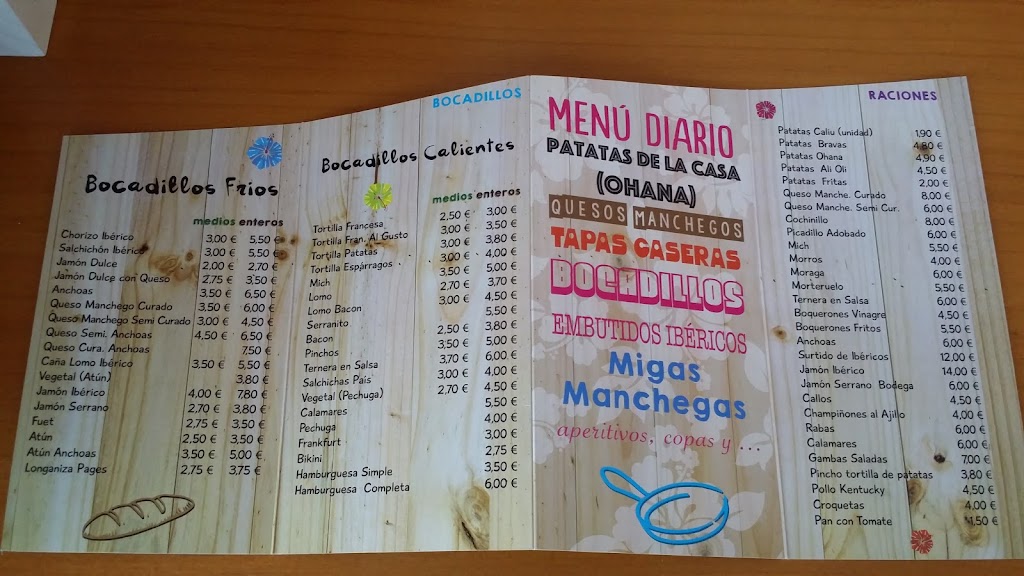 BOCADILLOS
Bocadillos Fríos
medios enteros
Chorizo Ibérico 3,00 € 5,50 €
Salchichón Ibérico 3,00 € 5,50 €
Jamón Dulce 2,00 € 2,70 €
Jamón Dulce con Queso 2,75 € 3,50 €
Anchoas 3,50 € 6,50 €
Queso Manchego Curado 3,50 € 6,00 €
Queso Manchego Semi Curado 3,00 € 4,50 €
Queso Semi. Anchoas 4,50 € 6,50 €
Queso Cura. Anchoas 7,50 €
Caña Lomo Ibérico 3,50 € 5,50 €
Vegetal (Atún) 3,80 €
Jamón Ibérico 4,00 € 7,80 €
Jamón Serrano 2,70 € 3,80 €
Fuet 2,75 € 3,50 €
Atún 2,50 € 3,50 €
Atún Anchoas 3,50 € 5,00 €
Longaniza Pages 2,75 € 3,75 €
Bocadillos Calientes
medios enteros
Tortilla Francesa 2,50 € 3,00 €
Tortilla Fran. Al Gusto 3,00 € 3,50 €
Tortilla Patatas 3,00 € 3,80 €
Tortilla Espárragos 3,00 € 4,00 €
Mich 3,50 € 5,00 €
Lomo 2,70 € 3,70 €
Lomo Bacon 3,00 € 4,50 €
Serranito 5,50 €
Bacon 2,50 € 3,80 €
Pinchos 3,50 € 5,00 €
Ternera en Salsa 3,70 € 6,00 €
Salchichas Pais 3,00 € 4,00 €
Vegetal (Pechuga) 2,70 € 4,50 €
Calamares 5,50 €
Pechuga 4,00 €
Frankfurt 3,00 €
Bikini 2,75 €
Hamburguesa Simple 3,50 €
Hamburguesa Completa 6,00 €
MENÚ DIARIO
PATATAS DE LA CASA
(OHANA)
QUESOS MANCHEGOS
TAPAS CASERAS
BOCADILLOS
EMBUTIDOS IBÉRICOS
Migas
Manchegas
aperitivos, copas y ...
RACIONES
Patatas Caliu (unidad) 1,90 €
Patatas Bravas 4,80 €
Patatas Ohana 4,90 €
Patatas Ali Oli 4,50 €
Patatas Fritas 2,00 €
Queso Manche. Curado 8,00 €
Queso Manche. Semi Cur. 6,00 €
Cochinillo 8,00 €
Picadillo Adobado 6,00 €
Mich 5,50 €
Morros 4,00 €
Moraga 6,00 €
Morteruelo 5,50 €
Ternera en Salsa 6,00 €
Boquerones Vinagre 4,50 €
Boquerones Fritos 5,50 €
Anchoas 6,00 €
Surtido de Ibéricos 12,00 €
Jamón Ibérico 14,00 €
Jamón Serrano Bodega 6,00 €
Callos 4,50 €
Champiñones al Ajillo 4,00 €
Rabas 6,00 €
Calamares 6,00 €
Gambas Saladas 7,00 €
Pincho tortilla de patatas 3,80 €
Pollo Kentucky 4,50 €
Croquetas 4,00 €
Pan con Tomate 1,50 €